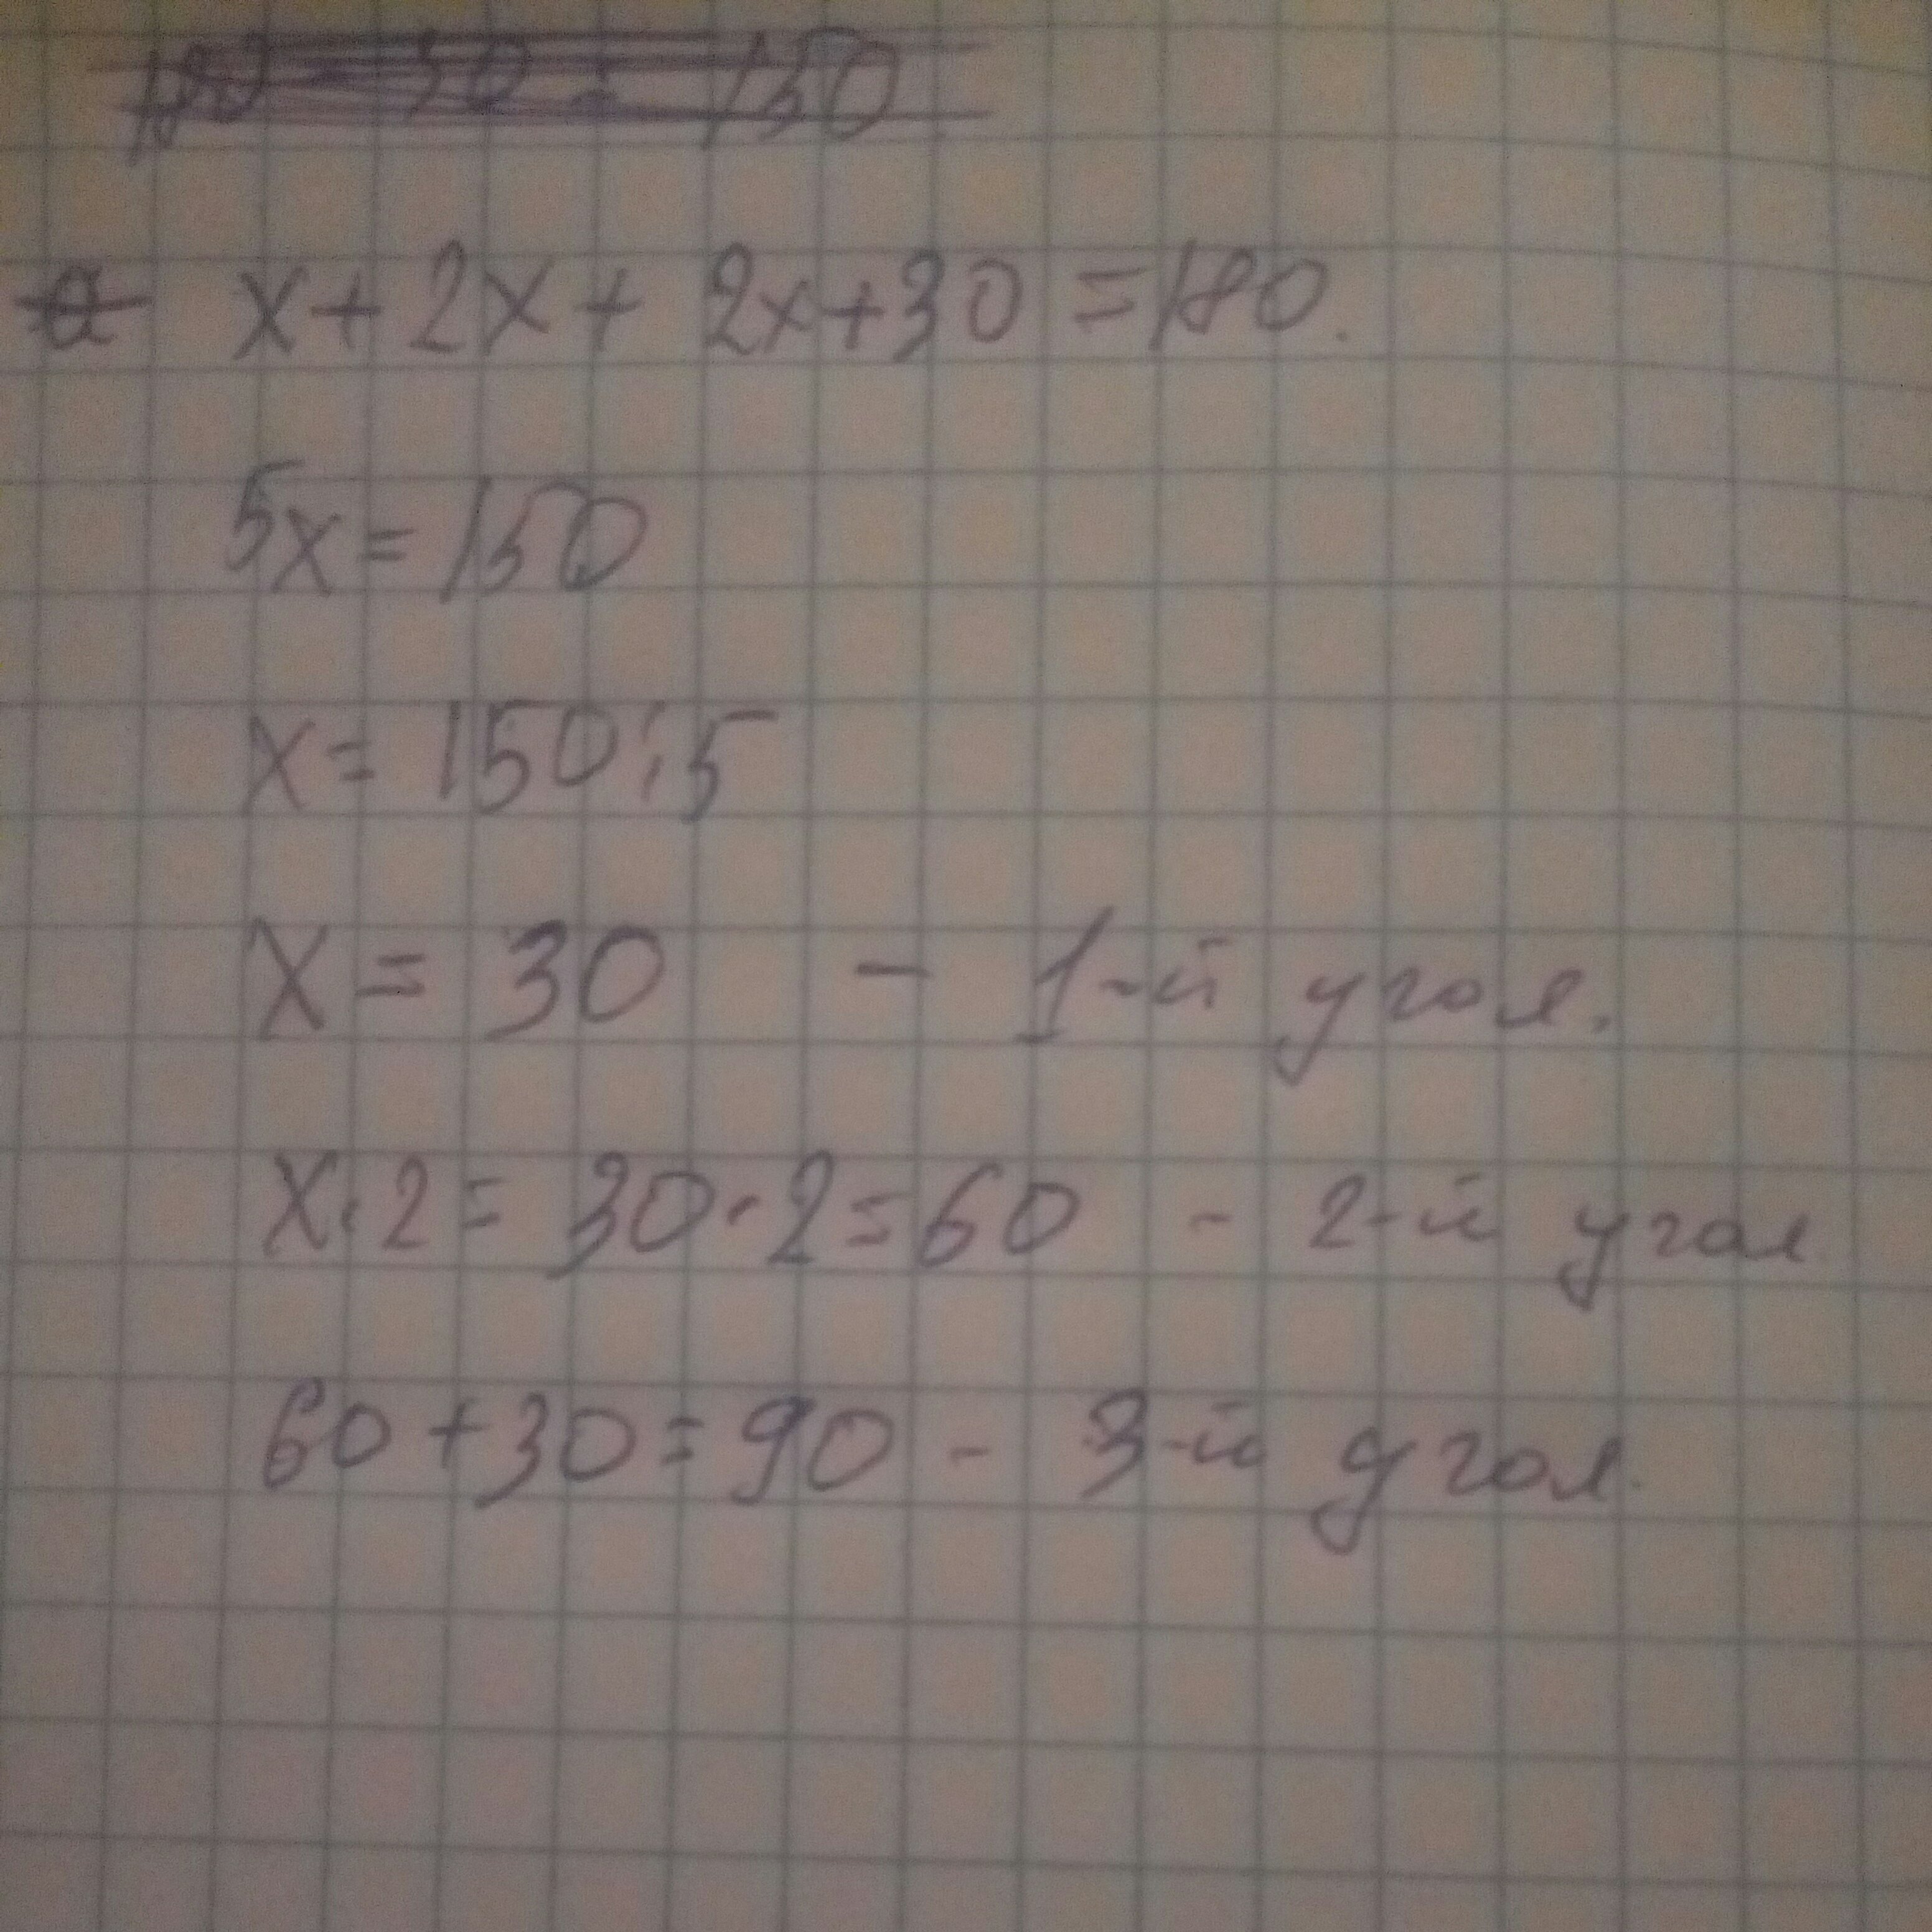 180 - 30 = 150
x + 2x + 2x + 30 = 180.
5x = 150
x = 150 : 5
x = 30 - 1-й угол.
x · 2 = 30 · 2 = 60 - 2-й угол
60 + 30 = 90 - 3-й угол.